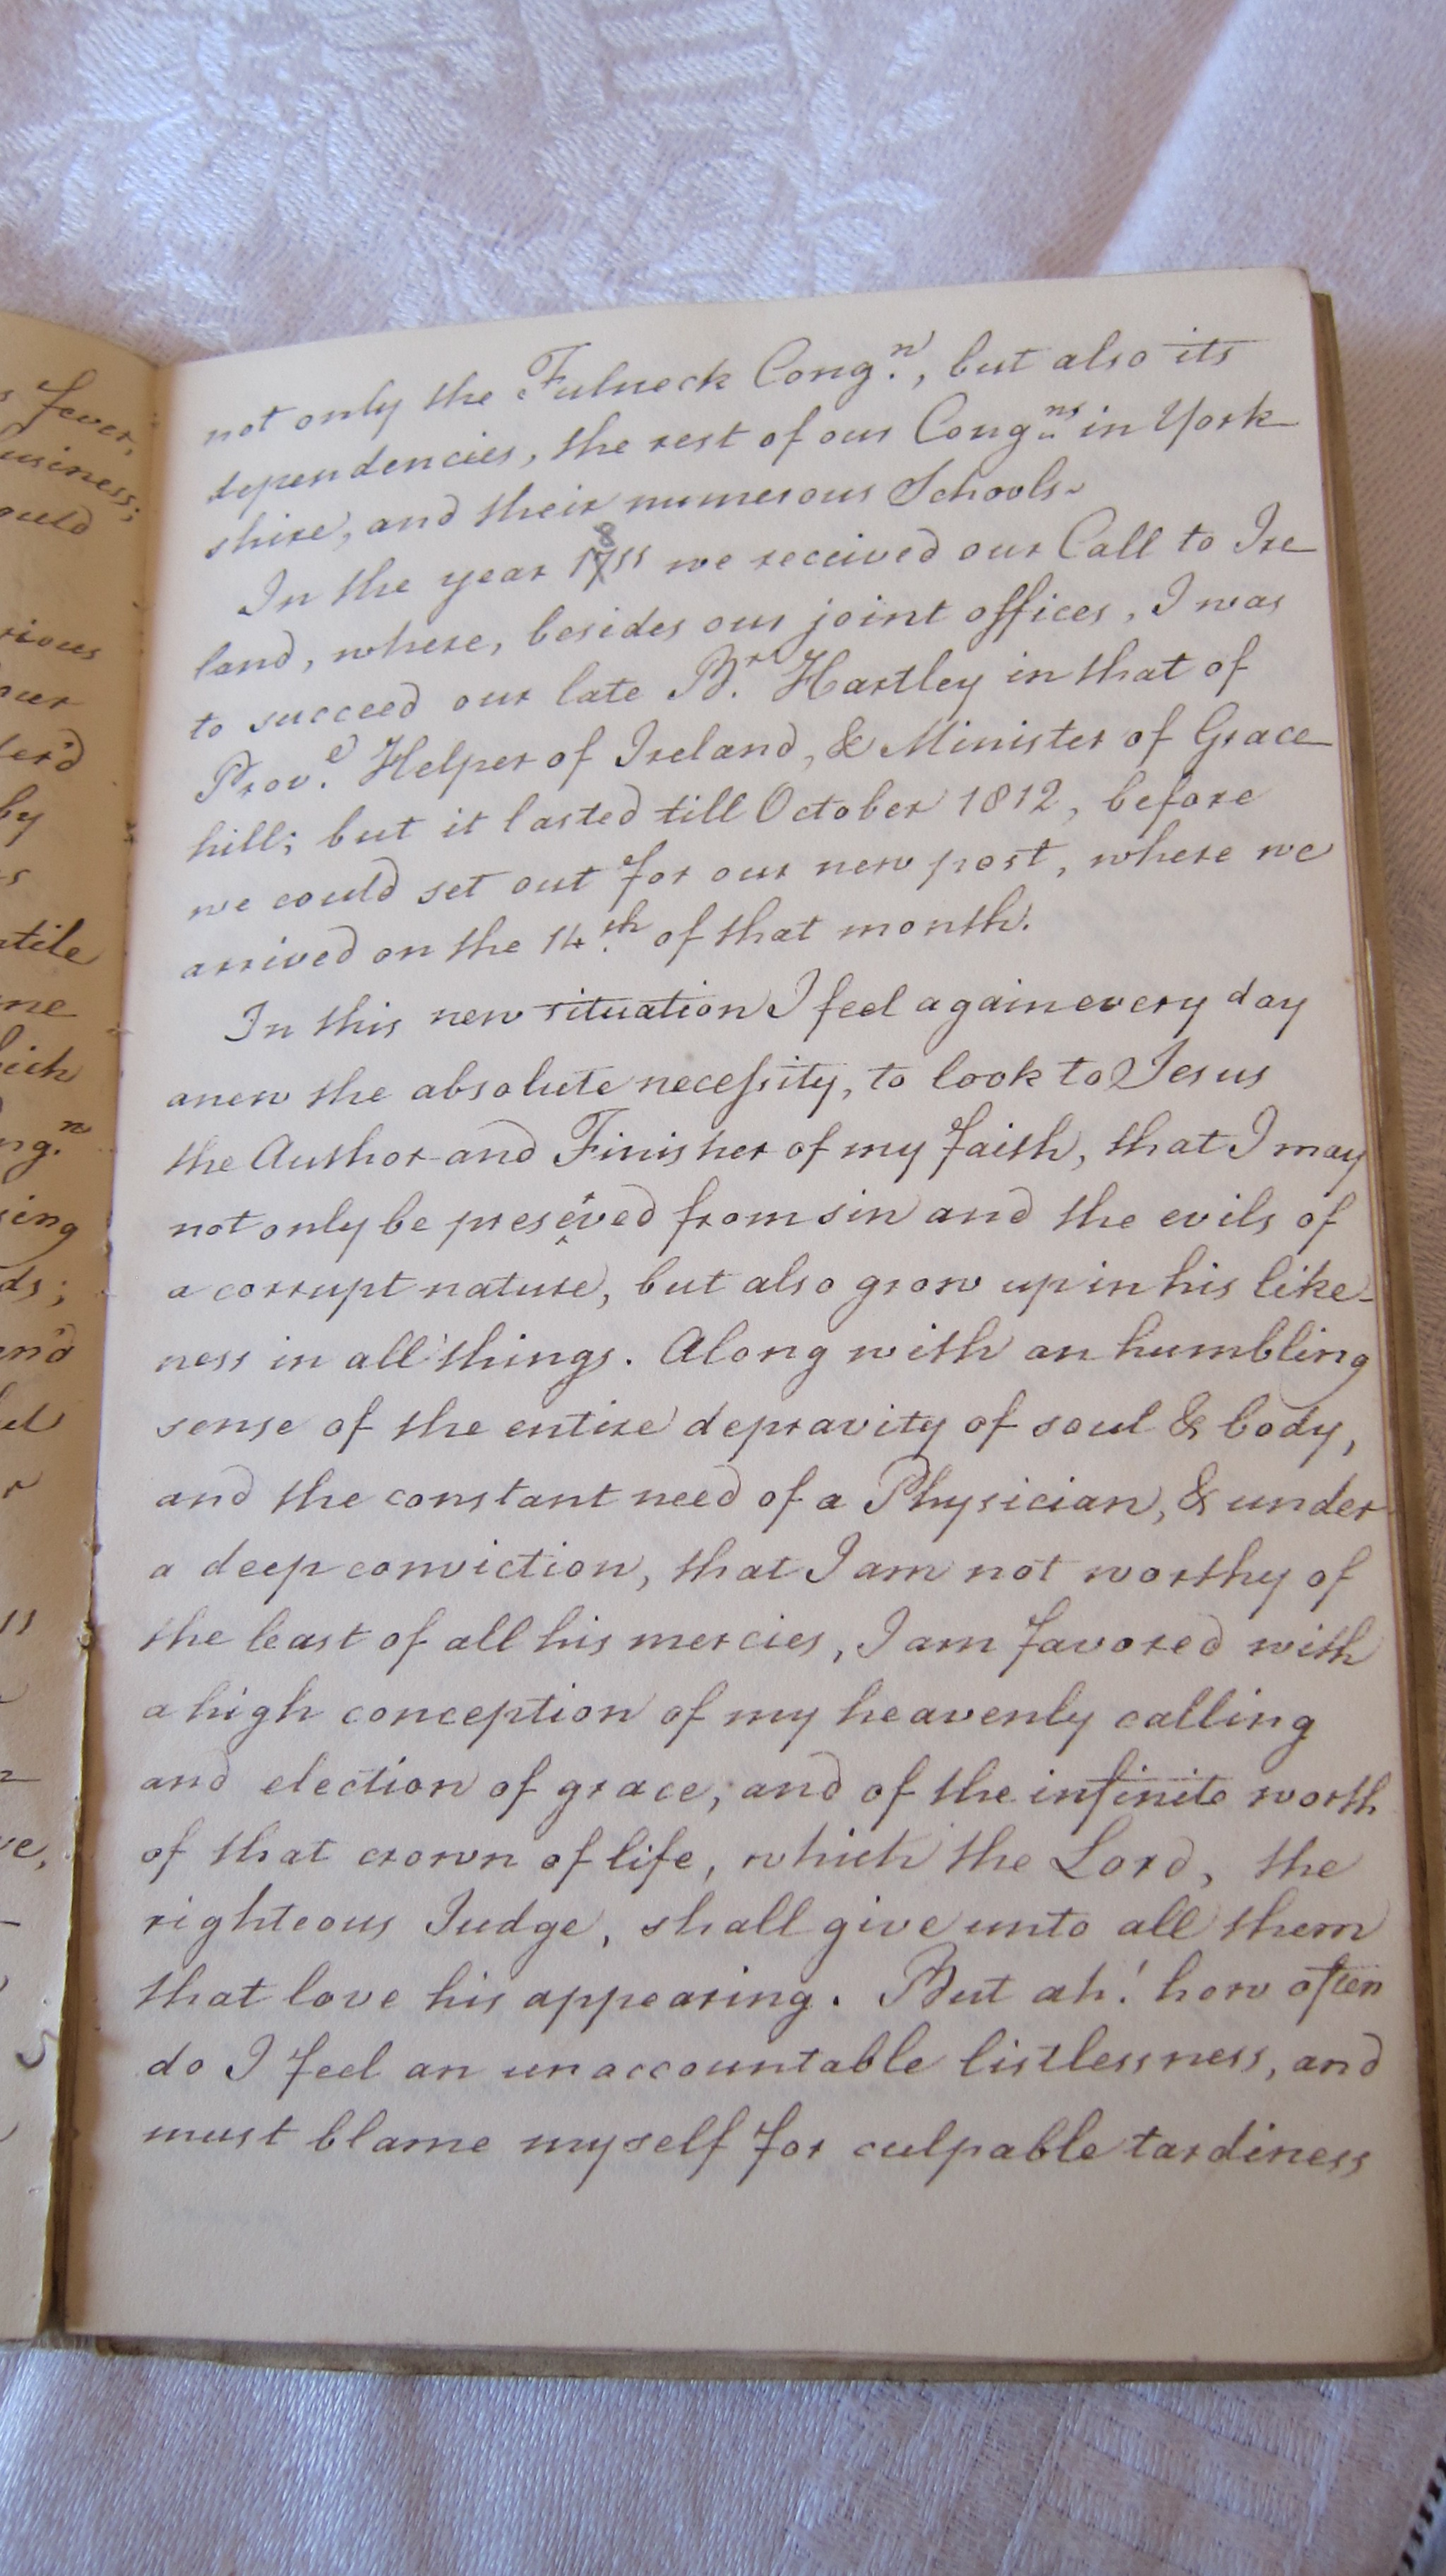 s fever,
usiness;
ould
rious
our
der'd
by
ntile
me
hich
ng.n
sing
ds;
en'd
11
ve,
not only the Fulneck Cong.n, but also its
dependencies, the rest of our Cong.ns in York-
shire, and their numerous Schools.
In the year 1811 we received our Call to Ire-
land, where, besides our joint offices, I was
to succeed our late B.r Hartley in that of
Prov.e Helper of Ireland, & Minister of Grace-
hill; but it lasted till October 1812, before
we could set out for our new post, where we
arrived on the 14.th of that month.
In this new situation I feel again every day
anew the absolute necessity, to look to Jesus
the Author and Finisher of my faith, that I may
not only be preserved from sin and the evils of
a corrupt nature, but also grow up in his like-
ness in all things. Along with an humbling
sense of the entire depravity of soul & body,
and the constant need of a Physician, & under
a deep conviction, that I am not worthy of
the least of all his mercies, I am favored with
a high conception of my heavenly calling
and election of grace, and of the infinite worth
of that crown of life, which the Lord, the
righteous Judge, shall give unto all them
that love his appearing. But ah! how often
do I feel an unaccountable listlessness, and
must blame myself for culpable tardiness